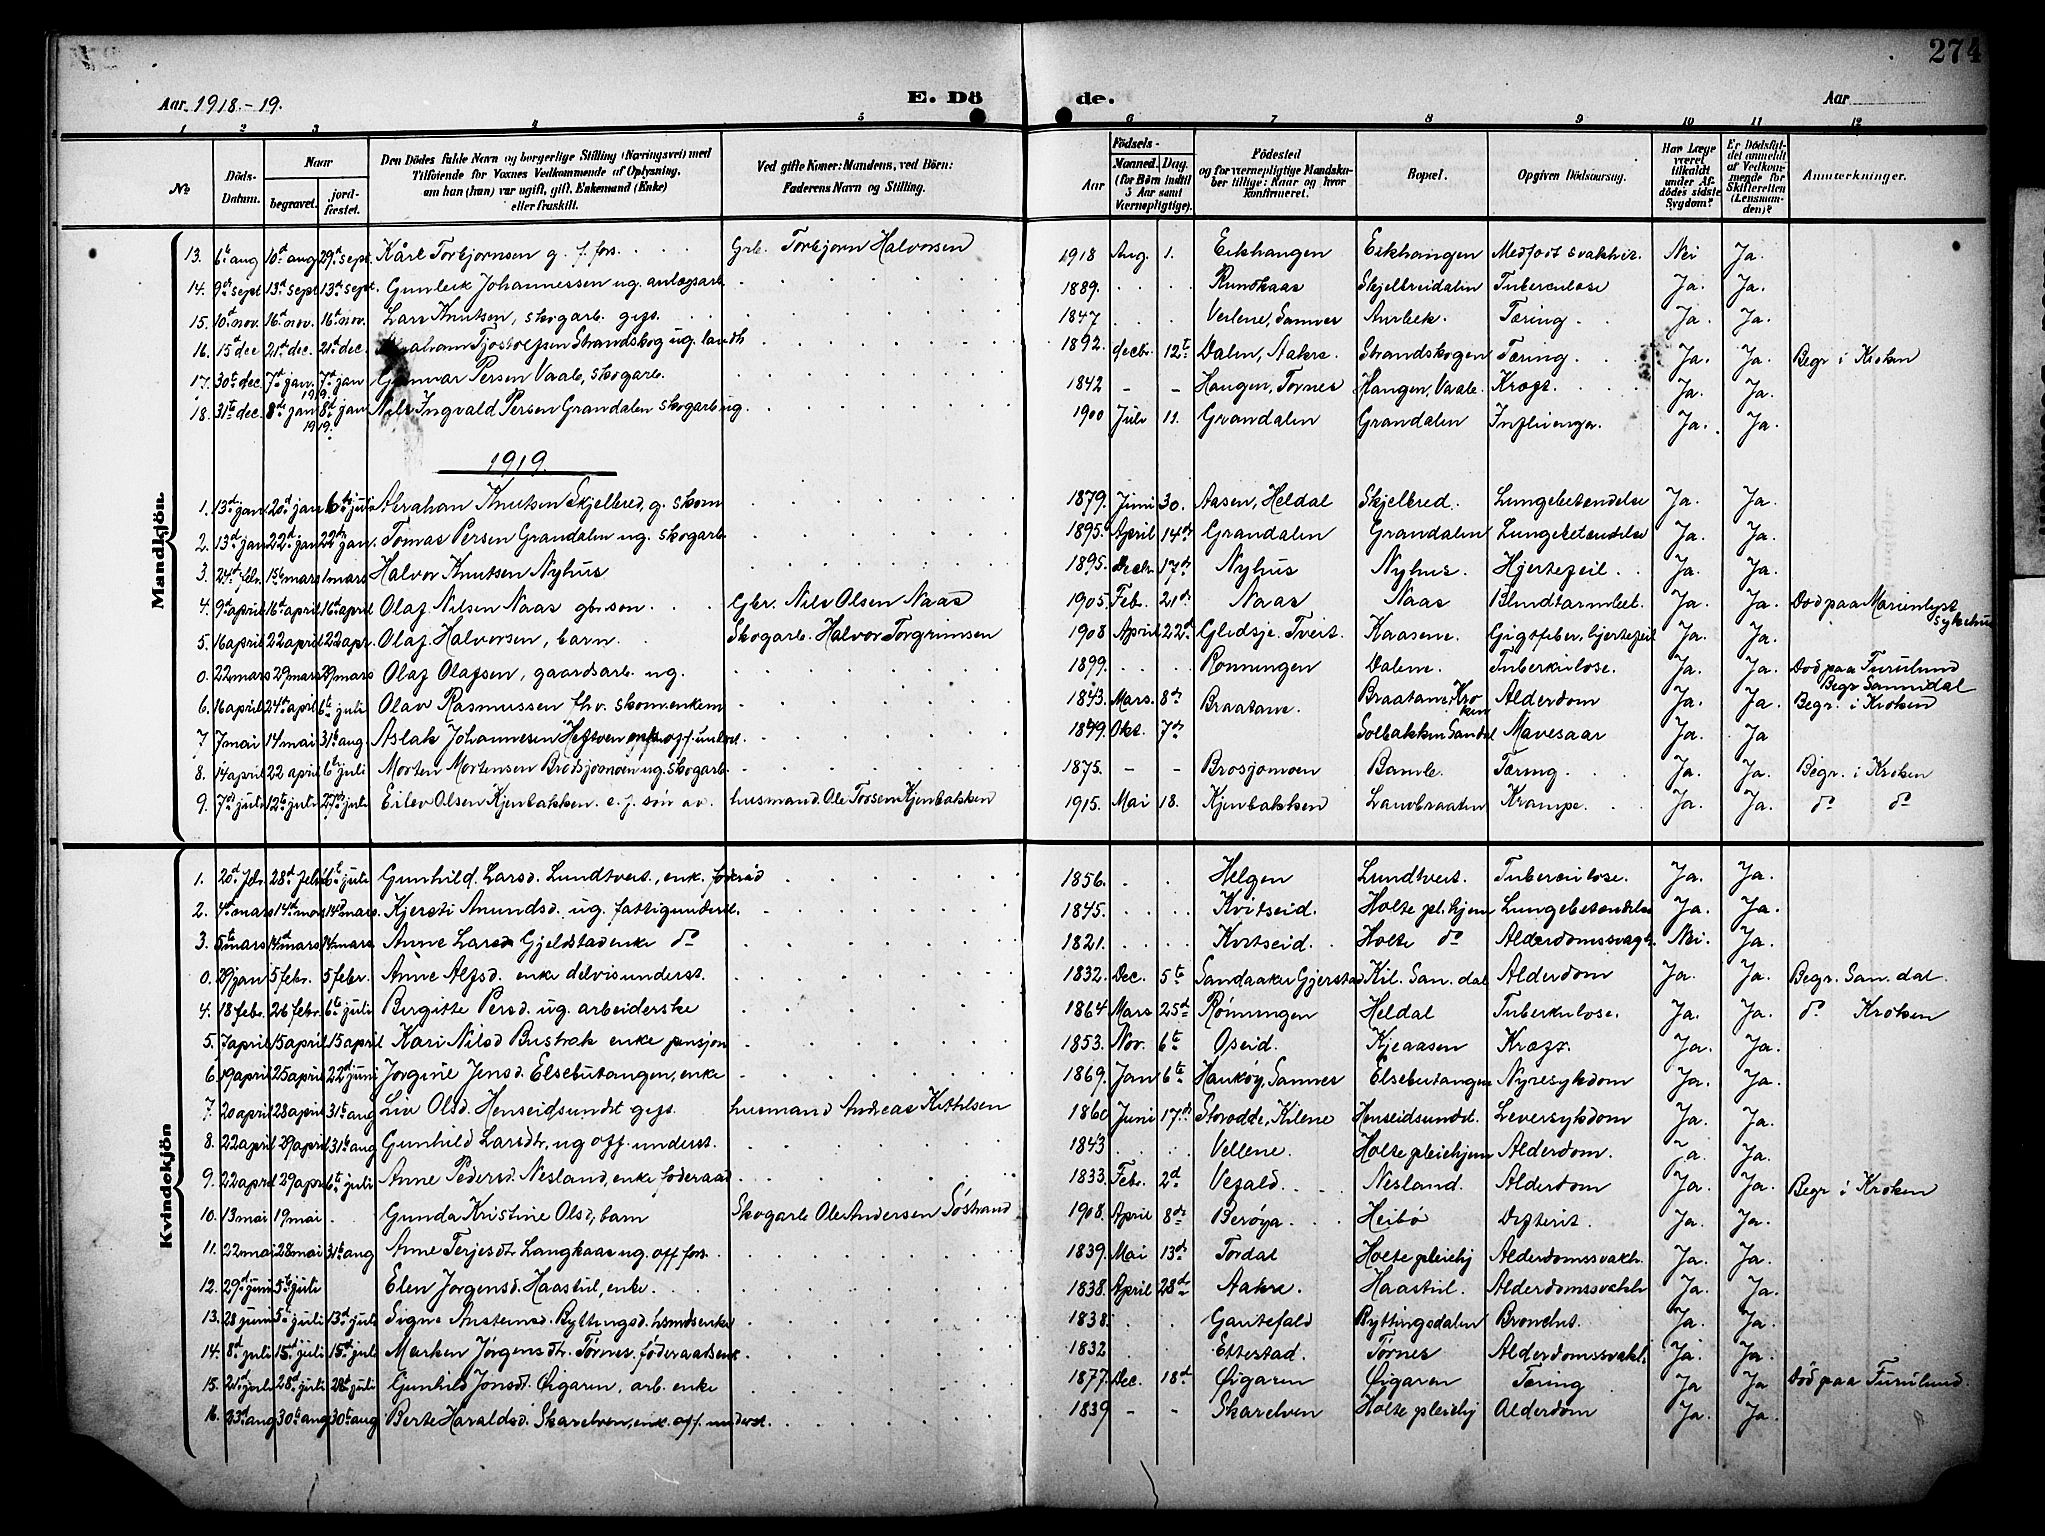 274
Aar 1918.-19.
E. Dö de.
Aar
1 2 3 4 5 6 7 8 9 10 11 12
No
Döds-Datum.
Naar begravet. jordfæstet.
Den Dödes fulde Navn og borgerlige Stilling (Næringsvei) med Tilföiende for Voxnes Vedkommende af Oplysning, om han (hun) var ugift, gift, Enkemand (Enke) eller fraskilt.
Ved gifte Koner: Mandens, ved Börn: Faderens Navn og Stilling.
Födsels-
Aar
Maaned. Dag. (for Börn indtil 5 Aar samt Værnepligtige).
Födested og for værnepligtige Mandskaber tillige: Naar og hvor konfirmeret.
Bopæl.
Opgiven Dödsaarsag.
Har Læge været tilkaldt under Afdödes sidste Sygdom?
Er Dödsfaldet anmeldt af Vedkommende for Skifteretten (Lensmanden)?
Anmærkninger.
Mandkjön.
13. 6te aug 10de aug 29de sept. Kårl Torbjornsen g. f. fors. Grb. Torbjorn Halvorsen 1918 Aug. 1. Eikhangen Eikhangen Medfødt svakhet. Nei Ja.
14. 9de sept 13de sept 13de sept. Gunleik Johannessen ug. anlægsarb. 1889. Skjelbreidalen Tuberculose Ja. Ja.
15. 10de nov. 16de nov. 16de nov. Lars Knutsen, skogarb. gift. 1847 Veilene, Sannes Aurbek. Tæring. Ja. Ja.
16. 15de dec 21de dec. 21de dec. Abraham Tjostolfsen Strandskog ug. landh 1892. decbr. 12te Dalen, Aakre. Strandskogen Tæring. Ja. Ja. Begr i Kroken
17. 30te dec. 7de jan. 7de jan 1919. Gunnar Persen Vaale, skogarb. 1842 - - Haugen, Tornes Haugen, Vaale Kræft. Ja. Ja.
18. 31te dec. 8de jan 8de jan 1919. Nils Ingvald Persen Grandalen skogarb ug. 1900 Juli 11. Grandalen Grandalen Influenza. Ja. Ja.
1919.
1. 13de jan 20de jan 6te juli Abraham Knutsen Skjelbred, g. skom 1879. Juni 30. Aasen, Heldal Skjelbred. Lungebetendelse Ja. Ja.
2. 13de jan 22de jan 22de jan. Tomas Persen Grandalen ug. skogarb. 1895. April 14de Grandalen Grandalen Lungebetendelse Ja. Ja.
3. 24de febr. 1ste mars 1 mars Halvor Knutsen Nyhus 1895. Decbr. 17de Nyhus Nyhus. Hjertefeil. Ja. Ja.
4. 9de april 16de april 16de april Olaf Nilsen Naas gbr. søn. Gbr. Nils Olsen Naas 1905. Feb. 21de Naas Naas Blindtarmbet. Ja. Ja. Død paa Marienlyst sykehus
5. 16 april 22 april 22 apr. Olaf Halvorsen, barn. Skogarb. Halvor Torgrimsen 1908 April 22de Glidsje. Tveit. Kaasene. Gigtfeber, hjertefeil Ja. Ja.
0. 22 mars 29 mars 29 mars Olaf Olafsen, gaardsarb. ug. 1899. Rønningen Dalene. Tuberkulose. Ja. Ja. Død paa Furulund Begr. Sannidal
6. 16 april 24de april 6te juli Olav Rasmussen fhv. skom. enkem 1843. Mars. 8de Braatane. Braatane, Kroken Alderdom Ja. Ja. Begr. i Kroken
7 7 mai 14 mai 31te aug. Aslak Johannesen Heftven off. underst. 1849. Okt. 7de Solbakken Sandal Mavesaar Ja. Ja
8. 14 april 22 april 6te juli Morten Mortensen Brødsjømoen ug. skogarb. 1875. - - Brosjømoen Bamle. Tæring. Ja. Ja. Begr. i Kroken
9. 7de juli 12te juli 27de juli Eilev Olsen Kjenbakken. e. f. søn av. husmand. Ole Torsen Kjenbakken 1915. Mai 18. Kjenbakken Landbraaten Krampe. Ja. Ja. do do
Kvindekjön
1. 20de febr. 28de febr. 6te juli Gunhild Larsd. Lundtveit., enk. føderåd 1856. Helgen Lundtveit. Tuberculose. Ja. Ja.
2. 4de mars 14de mars 14de mars. Kjersti Anundsd. ug. fattigunderst. 1845. Kvitseid. Holte pl. hjem Lungebetendelse Ja. Ja.
3. 5te mars 14de mars 14. mars Anne Larsd. Gjelstad enke do 1821. Kvitseid. Holte do Alderdomssvagh. Nei. Ja.
0. 29 jan 5 febr. 5 febr. Anne Alfsd. enke delvis underst. 1832. Dec. 5te Sandaaker Gjerstad Kil. Sandal Alderdom Ja. Ja. Begr. Sandal
4. 18 febr. 26 febr. 6te juli Birgitte Persd. ug. arbeiderske 1864 Mars 25de Rønningen Heldal Tuberkulose. Ja. Ja. do Kroken
5. 7 april 15 april 15 april Kari Nilsd Bustrak enke pensjon 1853. Nov. 6te Oseid. Kjeaasen Kræft. Ja. Ja.
6. 19 april 25 april 22de juni Jorgine Jensd. Elsebutangen, enke 1869. Jan 6te Haukøy, Sannes Elsebutangen Nyresykdom Ja. Ja.
7. 20 april 28 april 31te aug Liv Olsd. Henseidsundet gift. husmand Andreas Kittilsen 1860 Juni 17de Storodde, Kilene Henseidsundet. Leversykdom Ja. Ja.
8. 22 april 29 april 31te aug Gunhild Larsdtr, ug off. underst. 1843 Vellene. Holte pleiehjem Alderdom. Ja. Ja.
9. 22 april 29 april 6te juli Anne Pedersd. Nesland, enke føderaad 1833. Febr. 2de Vefald. Nesland. Alderdom Ja. Ja. Begr i Kroken
10. 13 mai 19 mai Gunda Kristine Olsd, barn Skogarb Ole Andersen Søstrand 1908. April 8de Berøya. Heibø Difterit. Ja. Ja.
11. 22 mai 28 mai 31te aug Anne Terjesdtr Langkaas ug. off fors. 1839. Mai 13de Tordal Holte pleiehj Alderdomssvakh. Ja. Ja.
12. 29de juni 5te juli Elen Jorgensd. Haastul, enke. 1838. April 28de Aakre. Haastul. Alderdomssvakh Ja. Ja.
13. 28 juni 5te juli 13de juli Signe Austensd. Ryttingsd. hsmdsenke 1838. Gautefald Ryttingsdalen Bronchit. Ja. Ja.
14. 8de juli 15de juli 15de juli Marken Jørgensdtr. Tornes, føderaadsenk. 1832 Ettestad. Tornes Alderdomssvakh Ja. Ja.
15. 21de juli 28de juli 28de juli Gunhild Jonsd. Øigaren, arb. enke 1877. Dec. 18de Øigaren Øigaren Tæring Ja Ja Død paa Furulund.
16. 23de aug 30te aug 30te aug Berte Haraldsd. Skarelven, enk. off. underst. 1839 - - Skarelven Holte pleiehj Alderdom Ja. Ja.